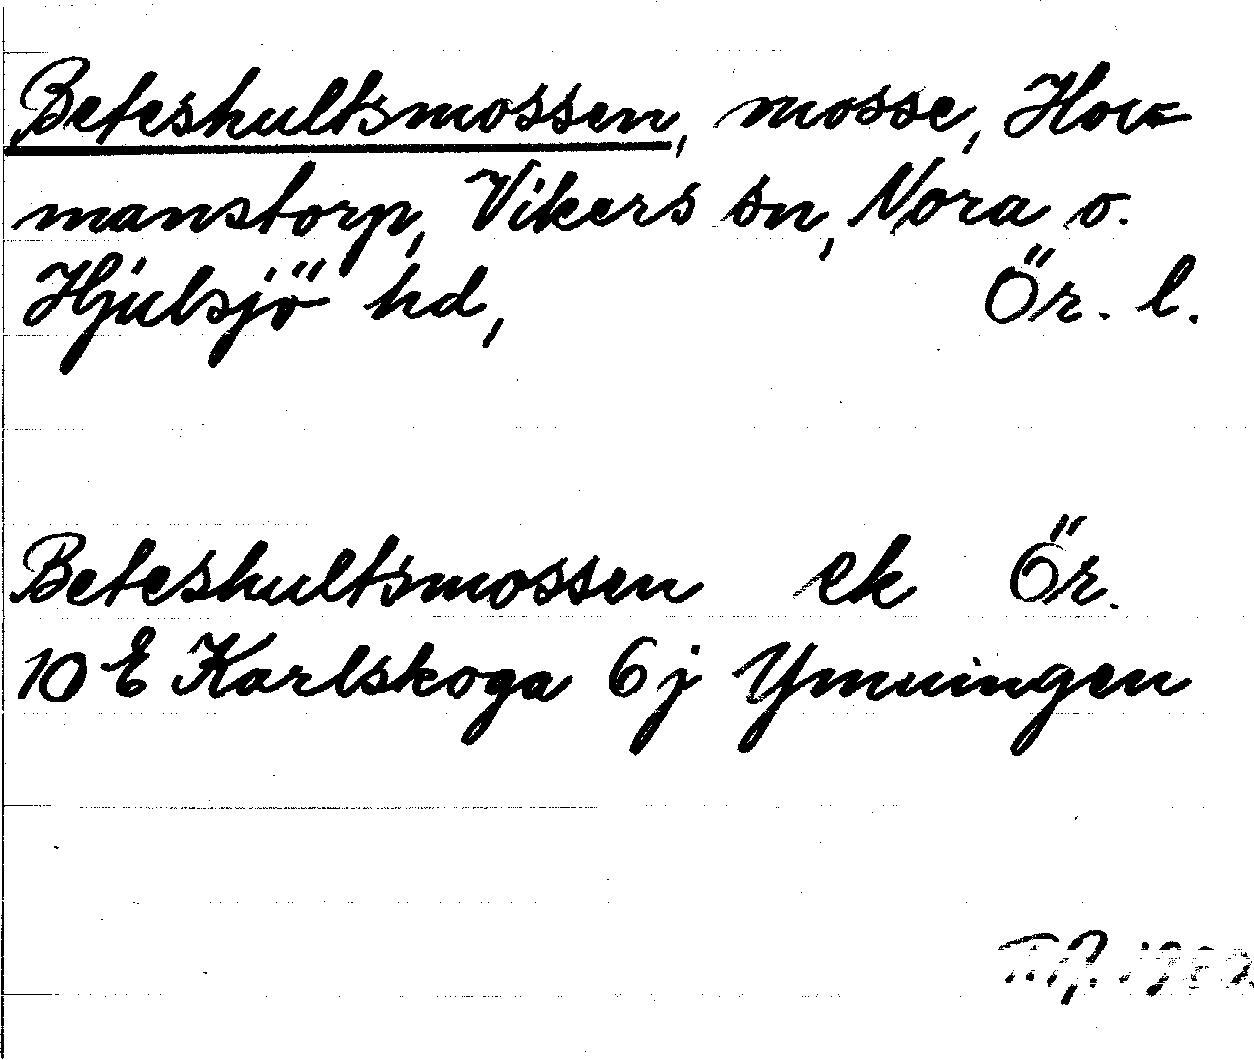 Beteshultsmossen, mosse, Hov-
manstorp, Vikers sn, Nora o.
Hjulsjö hd, Ör. l.
Beteshultsmossen ek Ör.
10 E Karlskoga 6j Ymningen